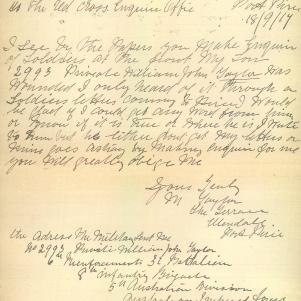 At the Red Cross Enquire Office Port Pirie
18/9/17
I see by the Papers you Make Enquire
of Soldiers at the front My Son
2993 Private William John Taylor was
Wounded I only heard of it through a
Soldiers letter coming to Pirie I would
be Glad if I could get any word from him
or know if it is true or where he is I write
to him but he either dont get My letters or
mine goes astray by Making Enquire for me
you will greatly oblige Me
Yours Truly
M Taylor
the Terrace
Port Pirie
the Adress The Military Sent Me
No 2993 Private William John Taylor
6th Reinforcements 32 Battalion
8th Infantry Brigade
5th Australian Division
Australian Imperial Force